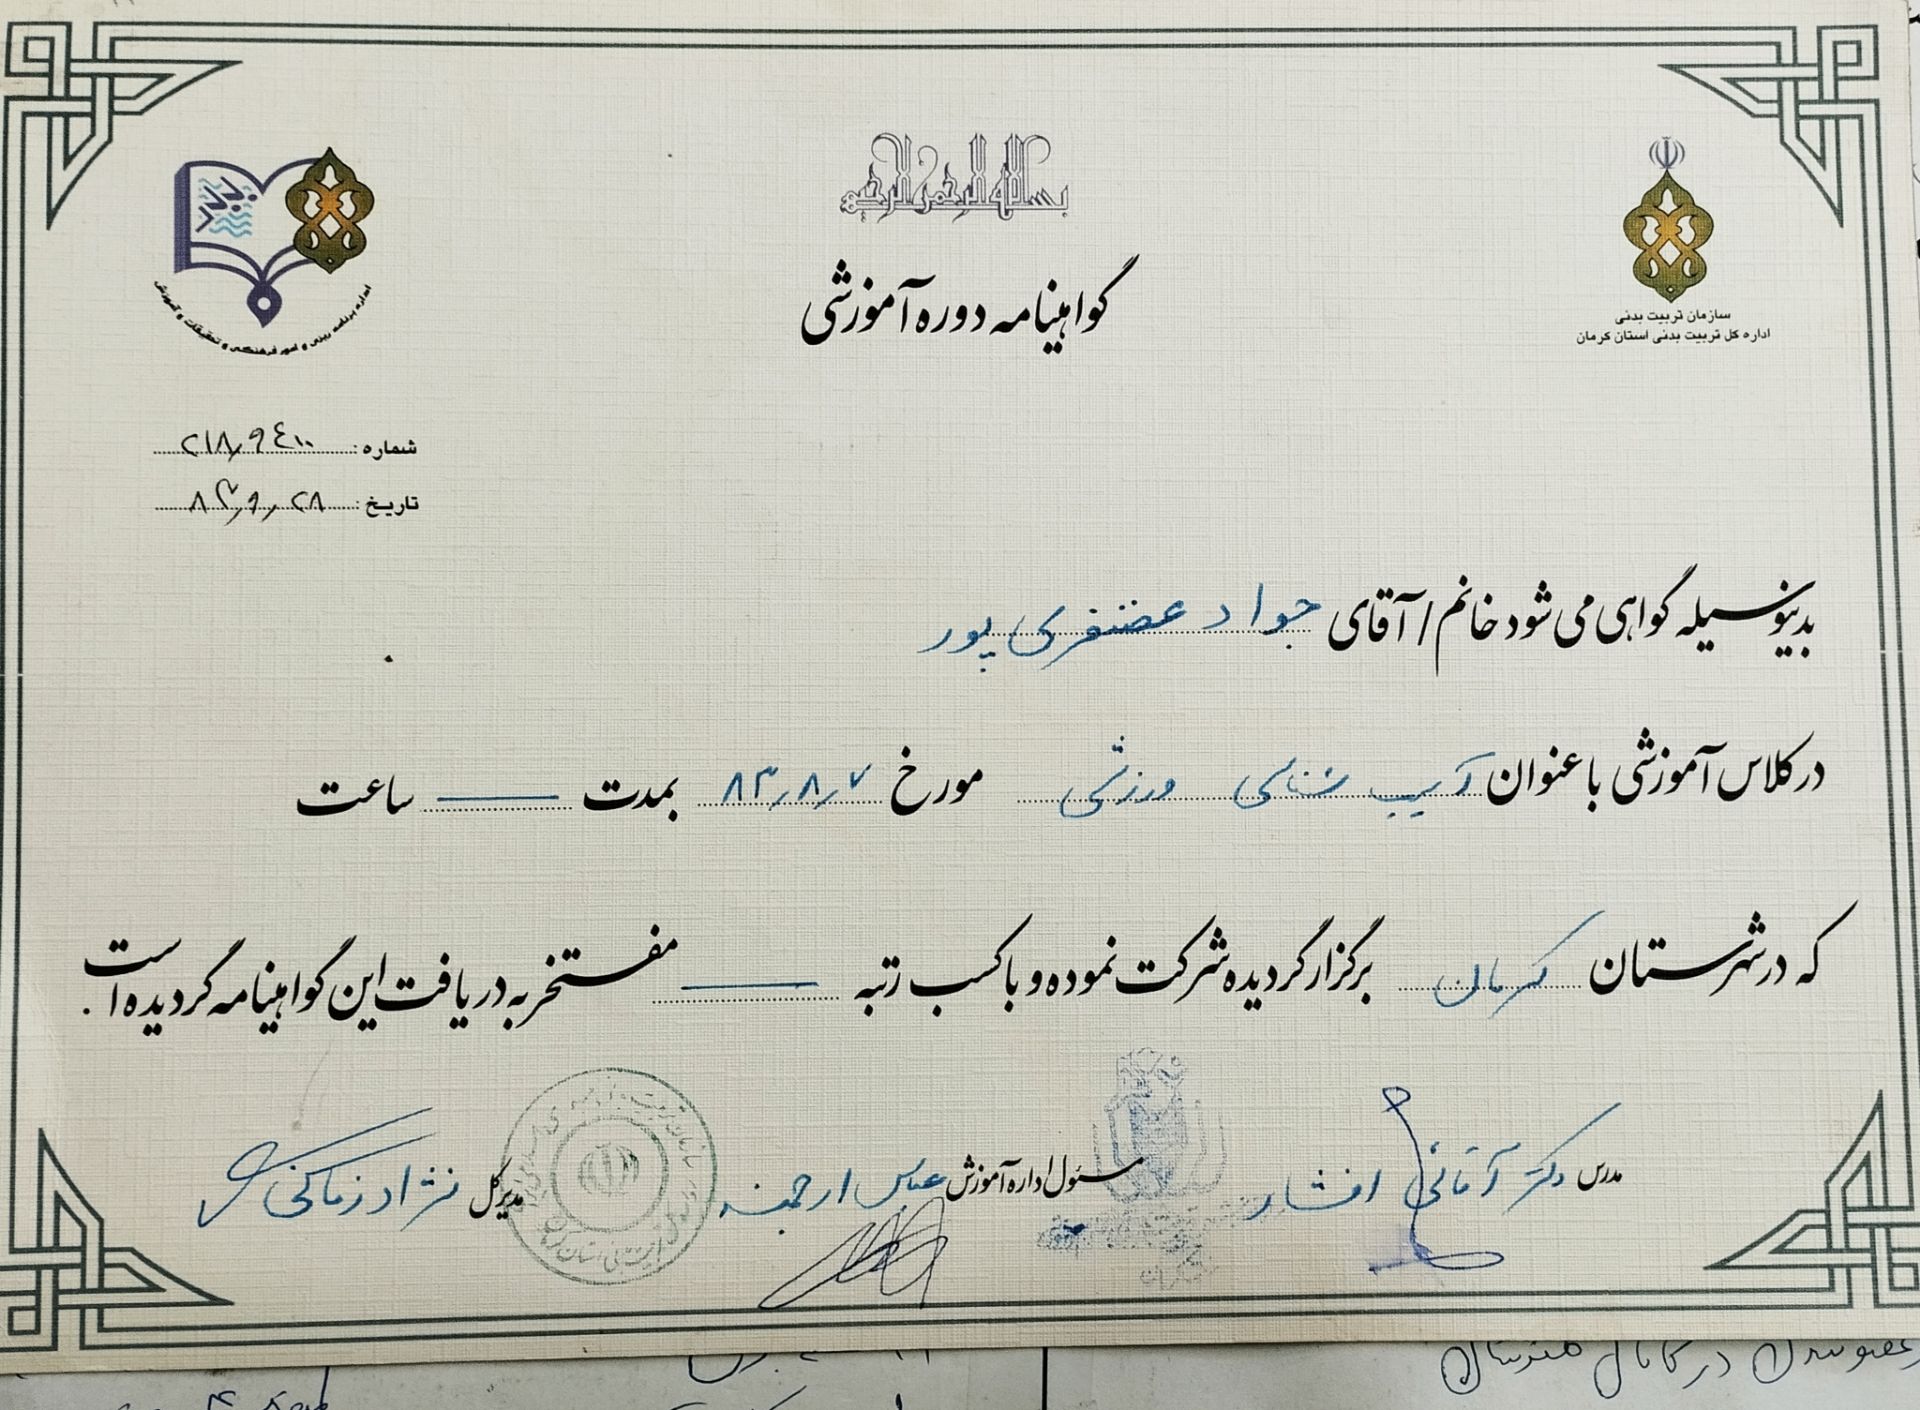 بسم الله الرحمن الرحیم
سازمان تربیت بدنی
اداره کل تربیت بدنی استان کرمان
اداره برنامه ریزی و امور فرهنگی و تحقیقات و آموزش
گواهینامه دوره آموزشی
شماره : ۲۱۸٫۹٤۰۰
تاریخ : ۸۳٫۹٫۲۸
بدینوسیله گواهی می شود خانم / آقای جواد غضنفری پور
در کلاس آموزشی با عنوان آسیب شناسی ورزشی مورخ ۸۳٫۸٫۷ بمدت ـــــ ساعت
که در شهرستان کرمان برگزار گردیده شرکت نموده و با کسب رتبه ـــــ مفتخر به دریافت این گواهینامه گردیده است .
مدرس دکتر آقائی افشار مسئول اداره آموزش عباس ارجمند مدیرکل نژاد زمانی
در کانال هنرستان